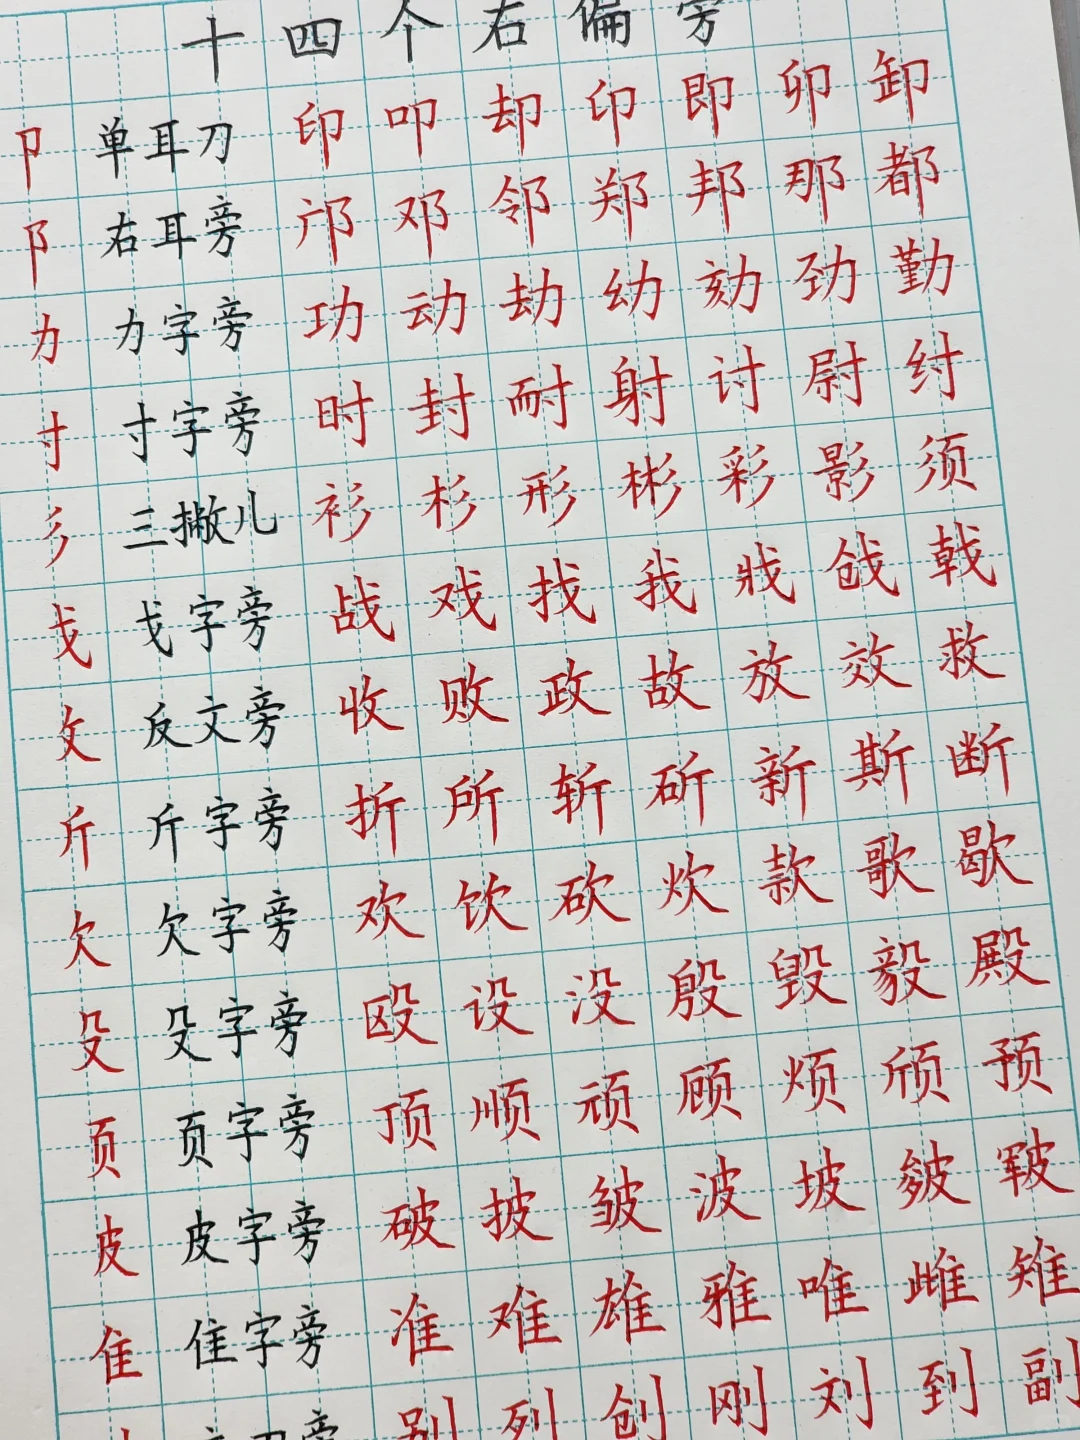 十四个右偏旁
卩 单耳刀 印 叩 却 印 即 卯 卸
阝 右耳旁 邝 邓 邻 郑 邦 那 都
力 力字旁 功 动 劫 幼 劾 劲 勤
寸 寸字旁 时 封 耐 射 讨 尉 纣
彡 三撇儿 衫 杉 形 彬 彩 影 须
戈 戈字旁 战 戏 找 我 戕 戗 戟
攵 反文旁 收 败 政 故 放 效 救
斤 斤字旁 折 所 斩 斫 新 斯 断
欠 欠字旁 欢 饮 砍 炊 款 歌 歇
殳 殳字旁 殴 设 没 殷 毁 毅 殿
页 页字旁 顶 顺 顽 顾 烦 颀 预
皮 皮字旁 破 披 皱 波 坡 皴 皲
隹 隹字旁 准 难 雄 雅 唯 雌 雉
刀旁 别 列 创 刚 刘 到 副